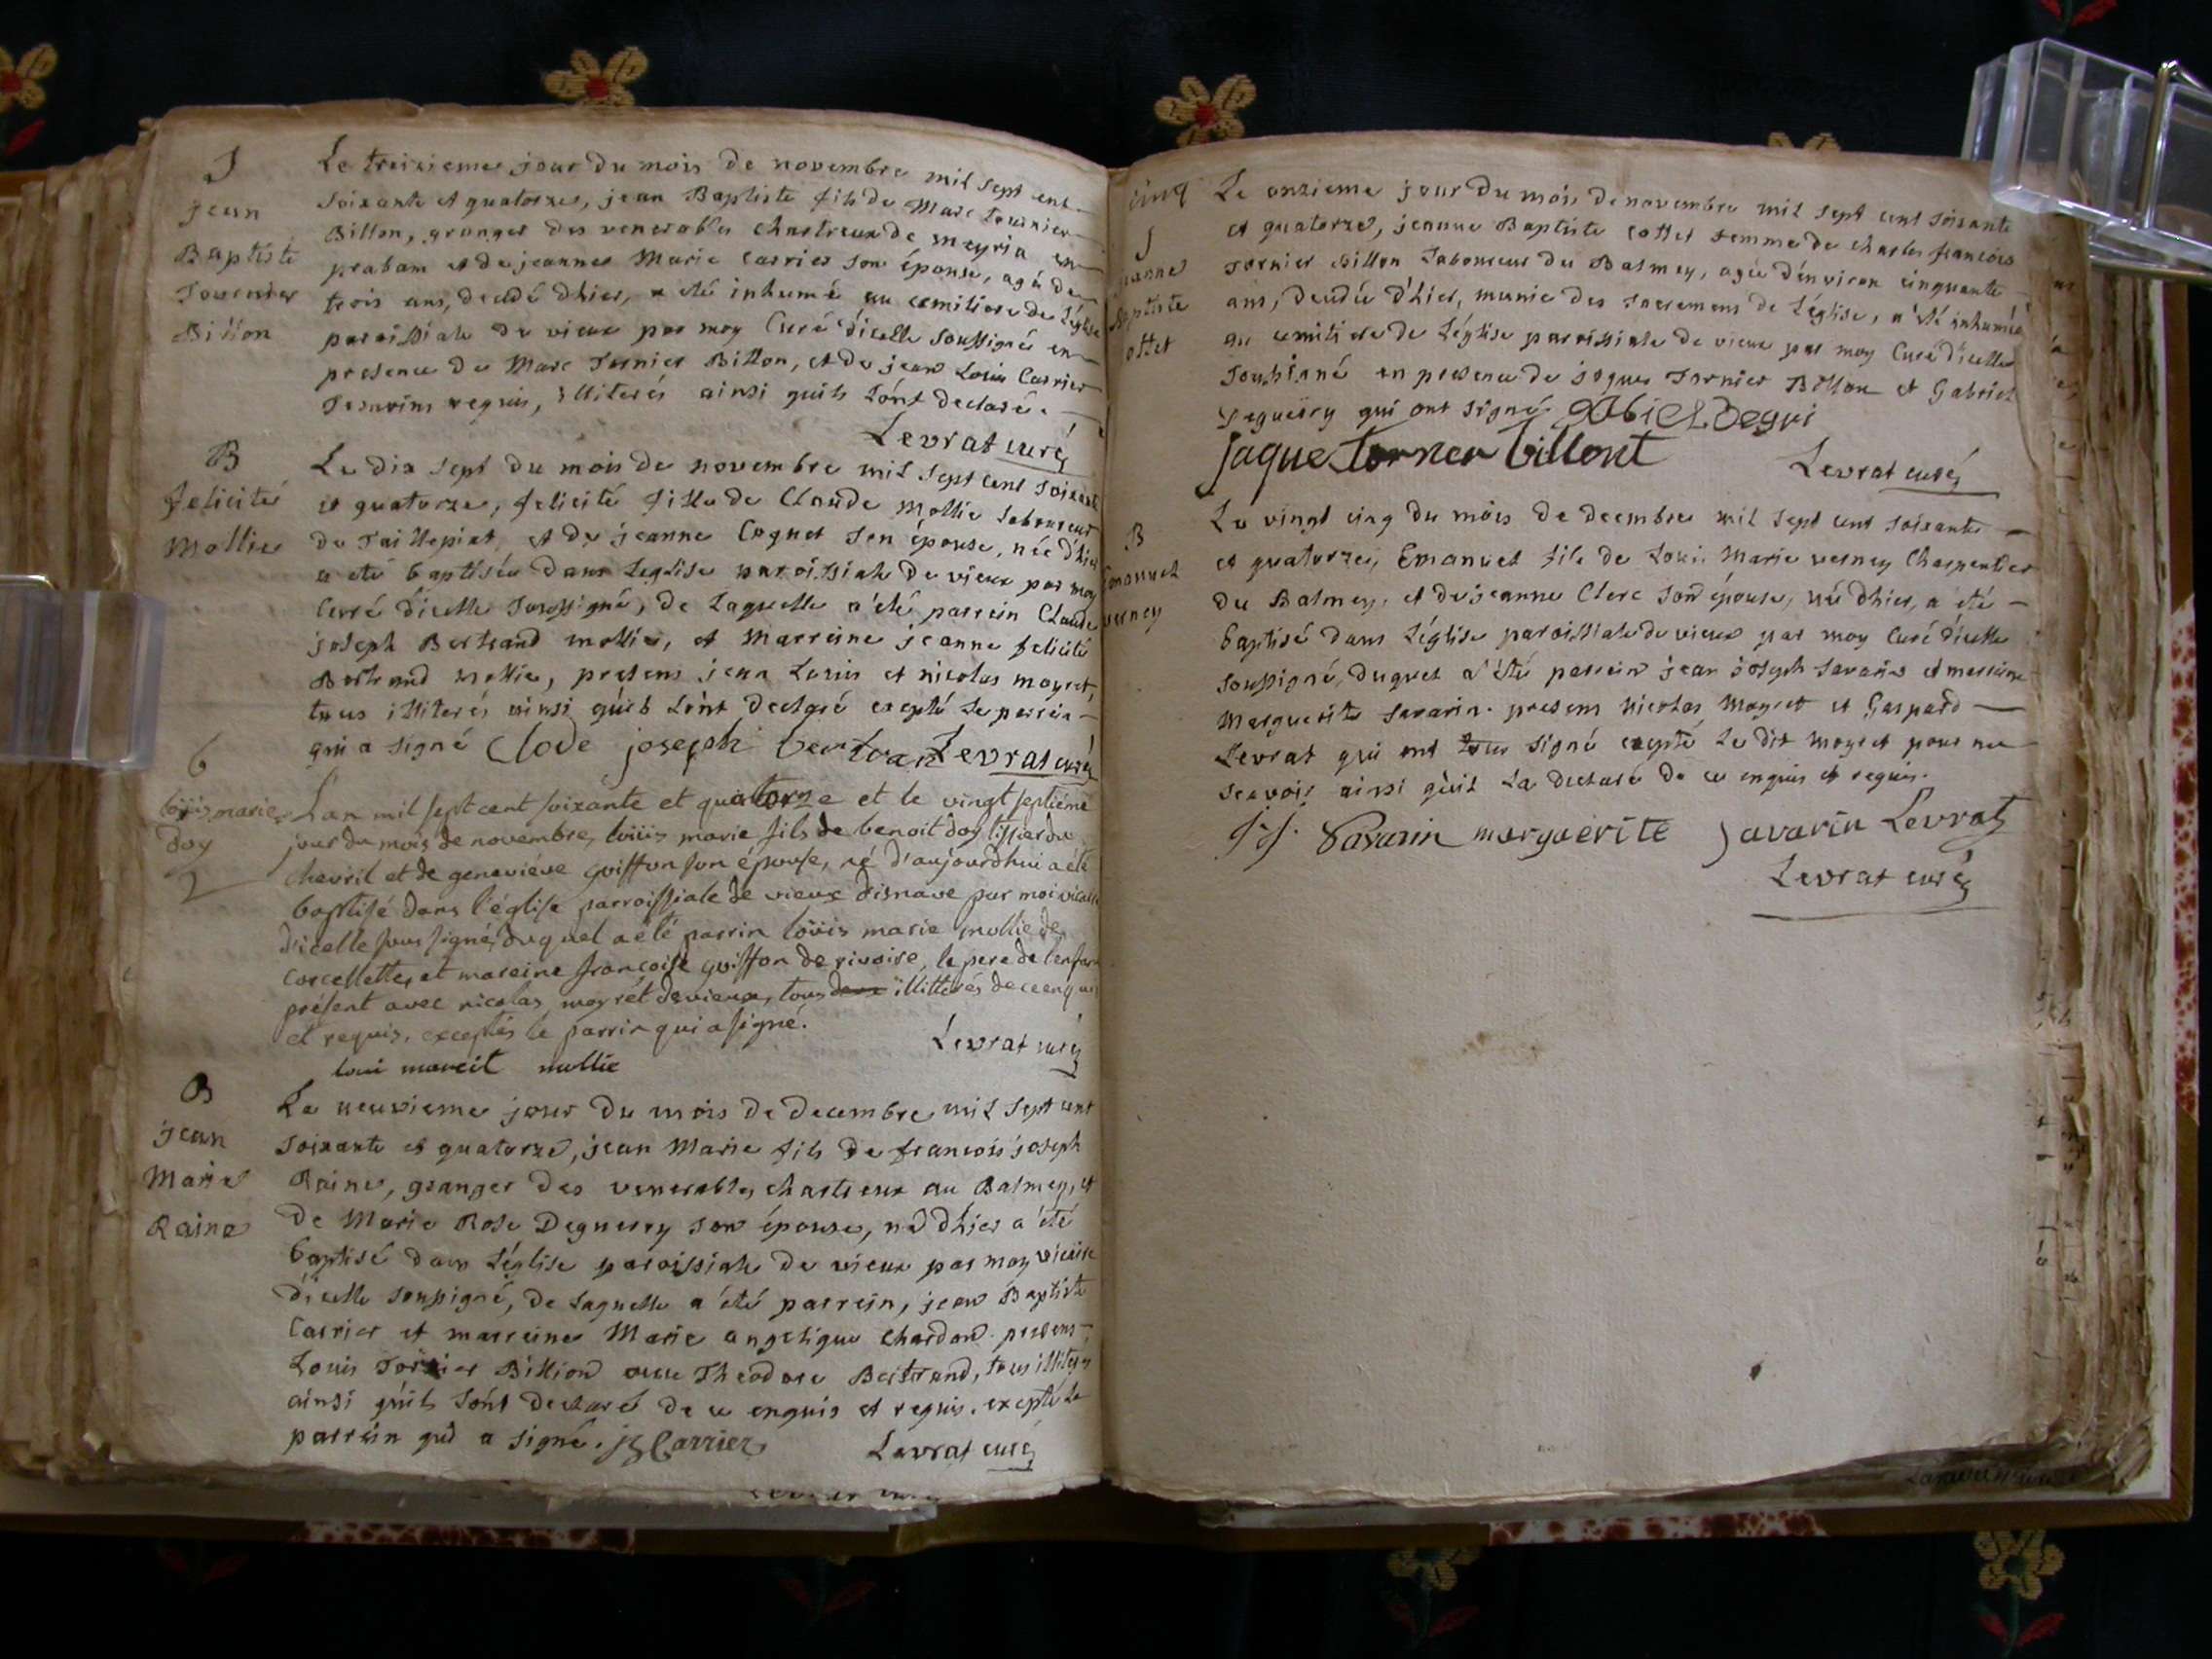 S
jean
Baptiste
Tournier
Billon
Le treizieme jour du mois de novembre mil sept cent
soixante et quatorze, jean Baptiste fils de Marc Tournier
Billon, granger des venerables chartreux de meyria en
prabam et de jeanne Marie Carrier son épouse, agé de
trois ans, decedé dhier, a eté inhumé au cemitiere de Léglise
paroissiale de vieux par moy Curé dicelle soussigné en
presence de Marc Tornier Billon, et de jean Louis Carrier
Temoins requis, illiterés ainsi quils Lónt declaré.
Levrat curé
B
felicité
Mollie
Le dix sept du mois de novembre mil sept cent soixante
et quatorze, felicité fille de Claude Mollie Laboureur
de Taillepiat, et de jeanne Coquet son épouse, née d'hier
a eté baptisée dans Leglise paroissiale de vieux par moy
Curé dicelle soussigné, de Laquelle a'eté parrein Claude
joseph Bertrand mollie, et Marreine jeanne felicité
Bertrand mollie, presens jean Louis et nicolas moyret,
tous illiterés ainsi quils Lónt declaré excepté Le parrein
qui a signé Clode joseph bertran Levrat curé
6
loüis marie
doy
2
L'an mil sept cent soixante et quatorze et le vingt septiéme
jour du mois de novembre, loüis marie fils de benoit doy tissier du
chevril et de geneviéve goiffon son épouse, né d'aujourd'hui a été
baptisé dans l'église parroissiale de vieux d'isnave par moi vicaire
d'icelle sous signé, duquel a été parrin loüis marie mollie de
corcellette, et mareine françoise goiffon de rivoire, le pere de l'enfant
présent avec nicolas moyrét de vieux, tous deux illitterés de ce enquis
et requis, exceptés le parrin qui a signé.
Levrat curé
loui mareit mollie
B
jean
Marie
Raine
Le neuvieme jour du mois de decembre mil sept cent
soixante et quatorze, jean Marie fils de francois joseph
Raine, granger des venerables chartreux au Balmey, et
de Marie Rose Deguerry son épouse, né dhier a 'eté
baptisé dans Léglise paroissiale de vieux par moy vicaire
dicelle soussigné, de Laquelle a 'été parrein, jean Baptiste
Carrier et marreine Marie angelique Chardon. presens
Louis Tornier Billion avec Theodore Bertrand, tous illiterés
ainsi quils Lónt declaré de ce enquis et requis. excepté Le
parrein qui a signé. jb Carrier
Levrat curé
cinq
S
jeanne
Baptiste
Cottet
Le onzieme jour du mois de novembre mil sept cent soixante
et quatorze, jeanne Baptiste Cottet femme de Charles francois
Tornier Billon Laboureur du Balmey, agée dénviron cinquante
ans, decedée d'hier, munie des sacremens de Léglise, a 'eté inhumée
au cemitiere de Léglise paroissiale de vieux par moy Curé dicelle
soussigné en presence de jaques Tornier Billon et Gabriel
Deguerry qui ont signé. GAbiel Degui
jaque torner billont
Levrat curé
B
Emanuel
verney
Le vingt cinq du mois de decembre mil sept cent soixante
et quatorze, Emanuel fils de Louis Marie verney Charpentier
du Balmey, et de jeanne Clerc son épouse, né dhier, a eté
baptisé dans Léglise paroissiale de vieux par moy Curé dicelle
soussigné, duquel a'été parrein jean joseph savarin et marreine
Marguerite Savarin. presens Nicolas Moyret et Gaspard
Levrat qui ont tous signé excepté Le dit moyret pour ne
scavoir ainsi qu'il La declaré de ce enquis et requis.
j j Savarin marguerite Savarin Levrat
Levrat curé